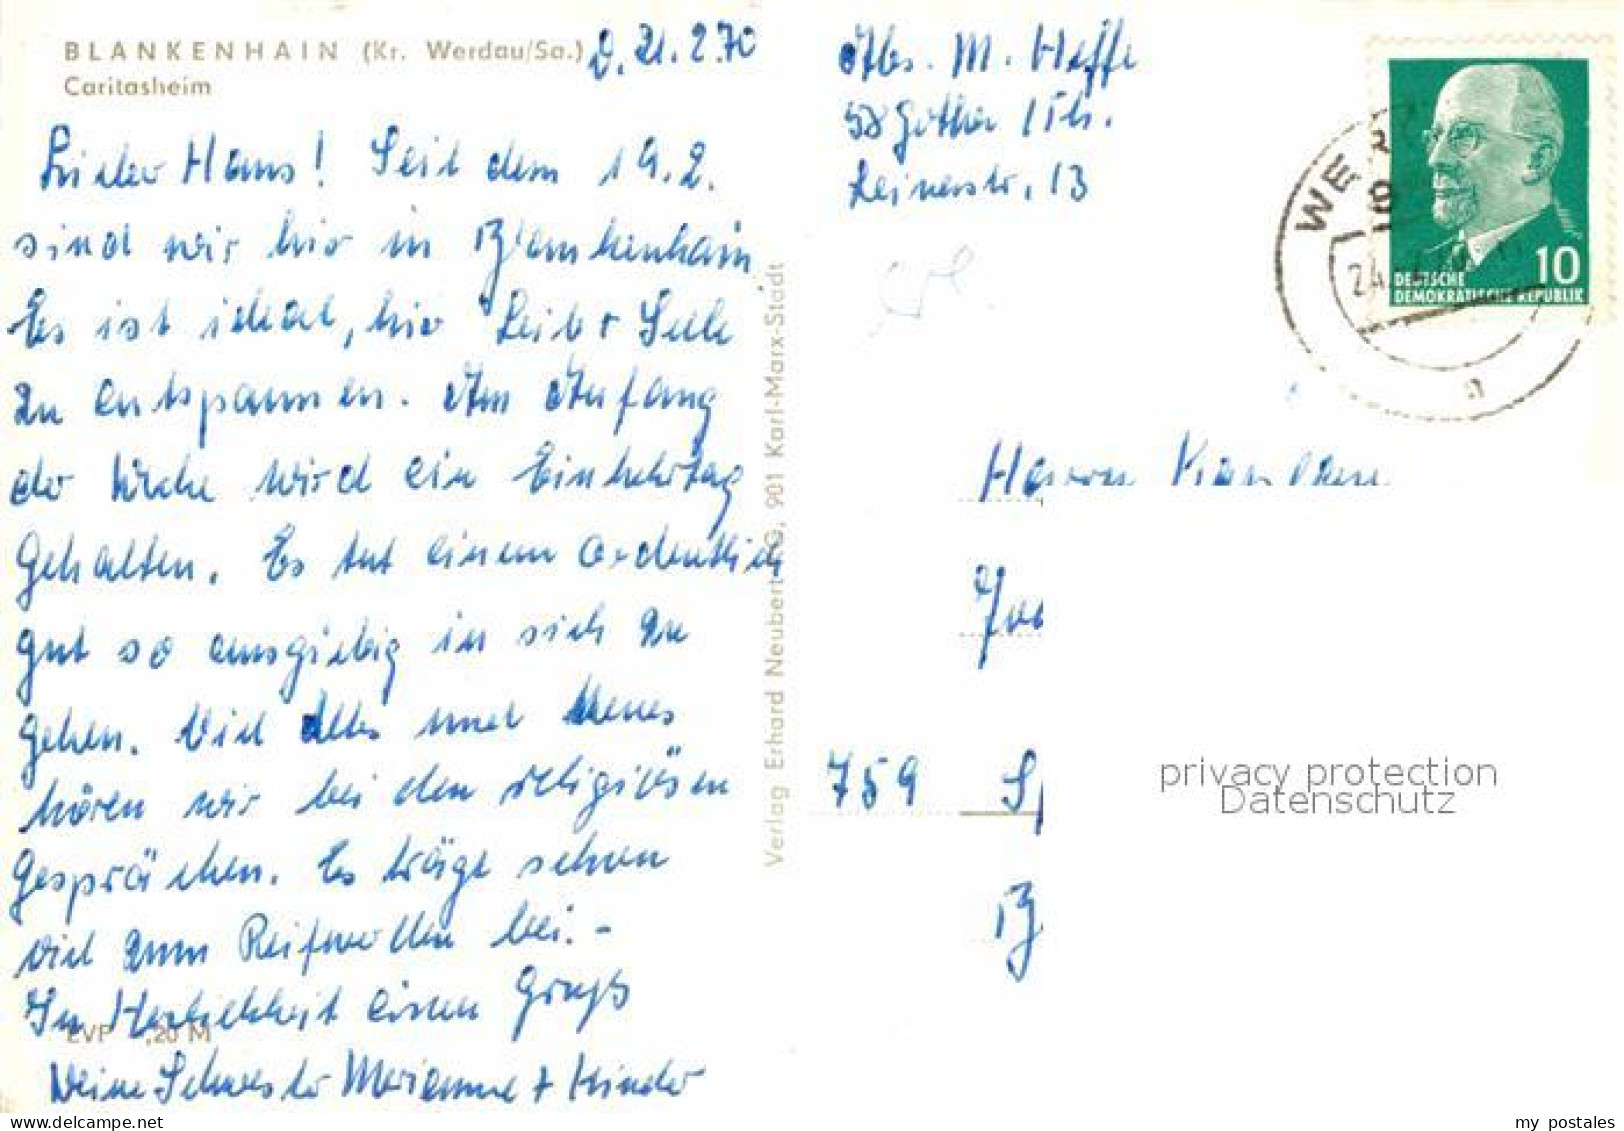 BLANKENHAIN (Kr. Werdau/Sa.) D. 21.2.70
Caritasheim
Lieber Hans! Seit dem 19.2.
sind wir hier in Blankenhain
Es ist ideal, hier Leib + Seele
zu entspannen. Am Anfang
der Woche wird ein Einkehrtag
gehalten. Es tut einem ordentlich
gut so ausgiebig in sich zu
gehen. Viel Altes und Neues
hören wir bei den religiösen
Gesprächen. Es trägt schon
viel zum Reifwerden bei. -
In Herzlichkeit einen Gruß
Deine Schwester Marianne + Kinder
EVP ,20 M
Verlag Erhard Neubert KG, 901 Karl-Marx-Stadt
Abs. M. Heffe
58 Gotha / Th.
Leinerstr. 13
DEUTSCHE
DEMOKRATISCHE REPUBLIK
10
WERD
24.
a
Herrn
759 Sp
B
privacy protection
Datenschutz
my postales